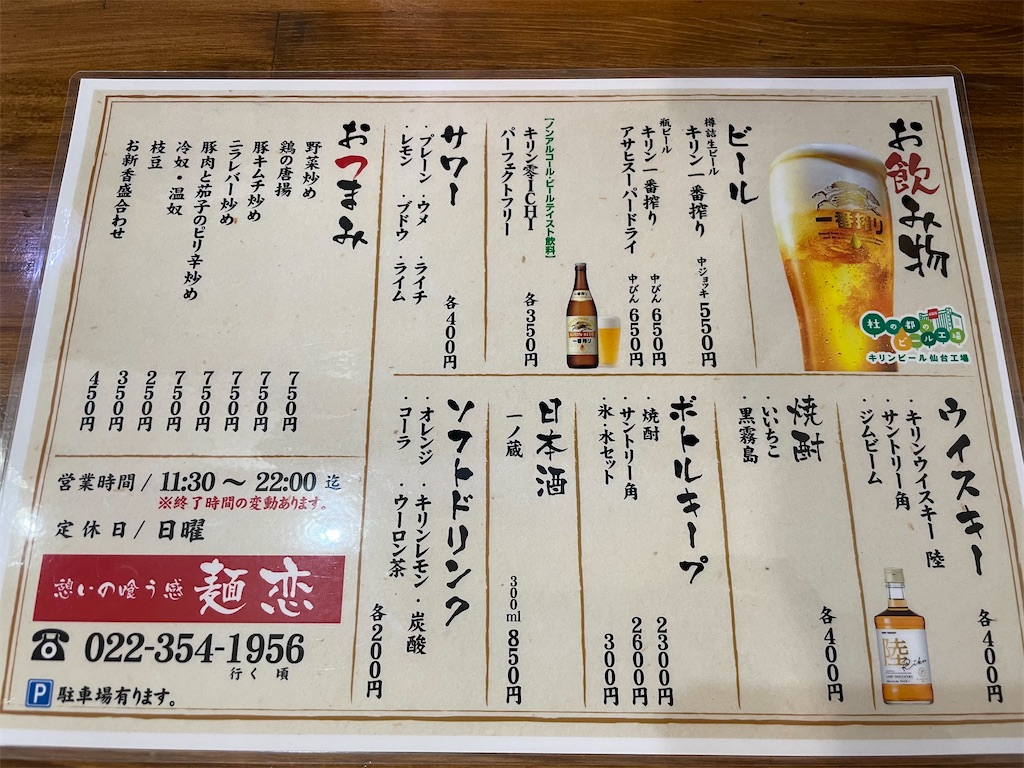 お飲み物
一番搾り
杜の都の
ビール工場
キリンビール仙台工場
ビール
樽詰生ビール
キリン一番搾り 中ジョッキ 550円
瓶ビール
キリン一番搾り 中びん 650円
アサヒスーパードライ 中びん 650円
【ノンアルコール・ビールテイスト飲料】
キリン零ICHI
パーフェクトフリー
各350円
サワー
・プレーン ・ウメ ・ライチ
・レモン ・ブドウ ・ライム
各400円
ウイスキー
・キリンウイスキー 陸
・サントリー角
・ジムビーム
各400円
陸
焼酎
・いいちこ
・黒霧島
各400円
ボトルキープ
・焼酎 2300円
・サントリー角 2600円
・氷・水セット 300円
日本酒
一ノ蔵 300ml 850円
ソフトドリンク
・オレンジ ・キリンレモン ・炭酸
・コーラ ・ウーロン茶
各200円
おつまみ
野菜炒め 750円
鶏の唐揚 750円
豚キムチ炒め 750円
ニラレバー炒め 750円
豚肉と茄子のピリ辛炒め 750円
冷奴・温奴 250円
枝豆 350円
お新香盛合わせ 450円
営業時間 / 11:30 〜 22:00 迄
※終了時間の変動あります。
定休日 / 日曜
憩いの喰う感 麺恋
☎ 022-354-1956
行く 頃
P 駐車場有ります。